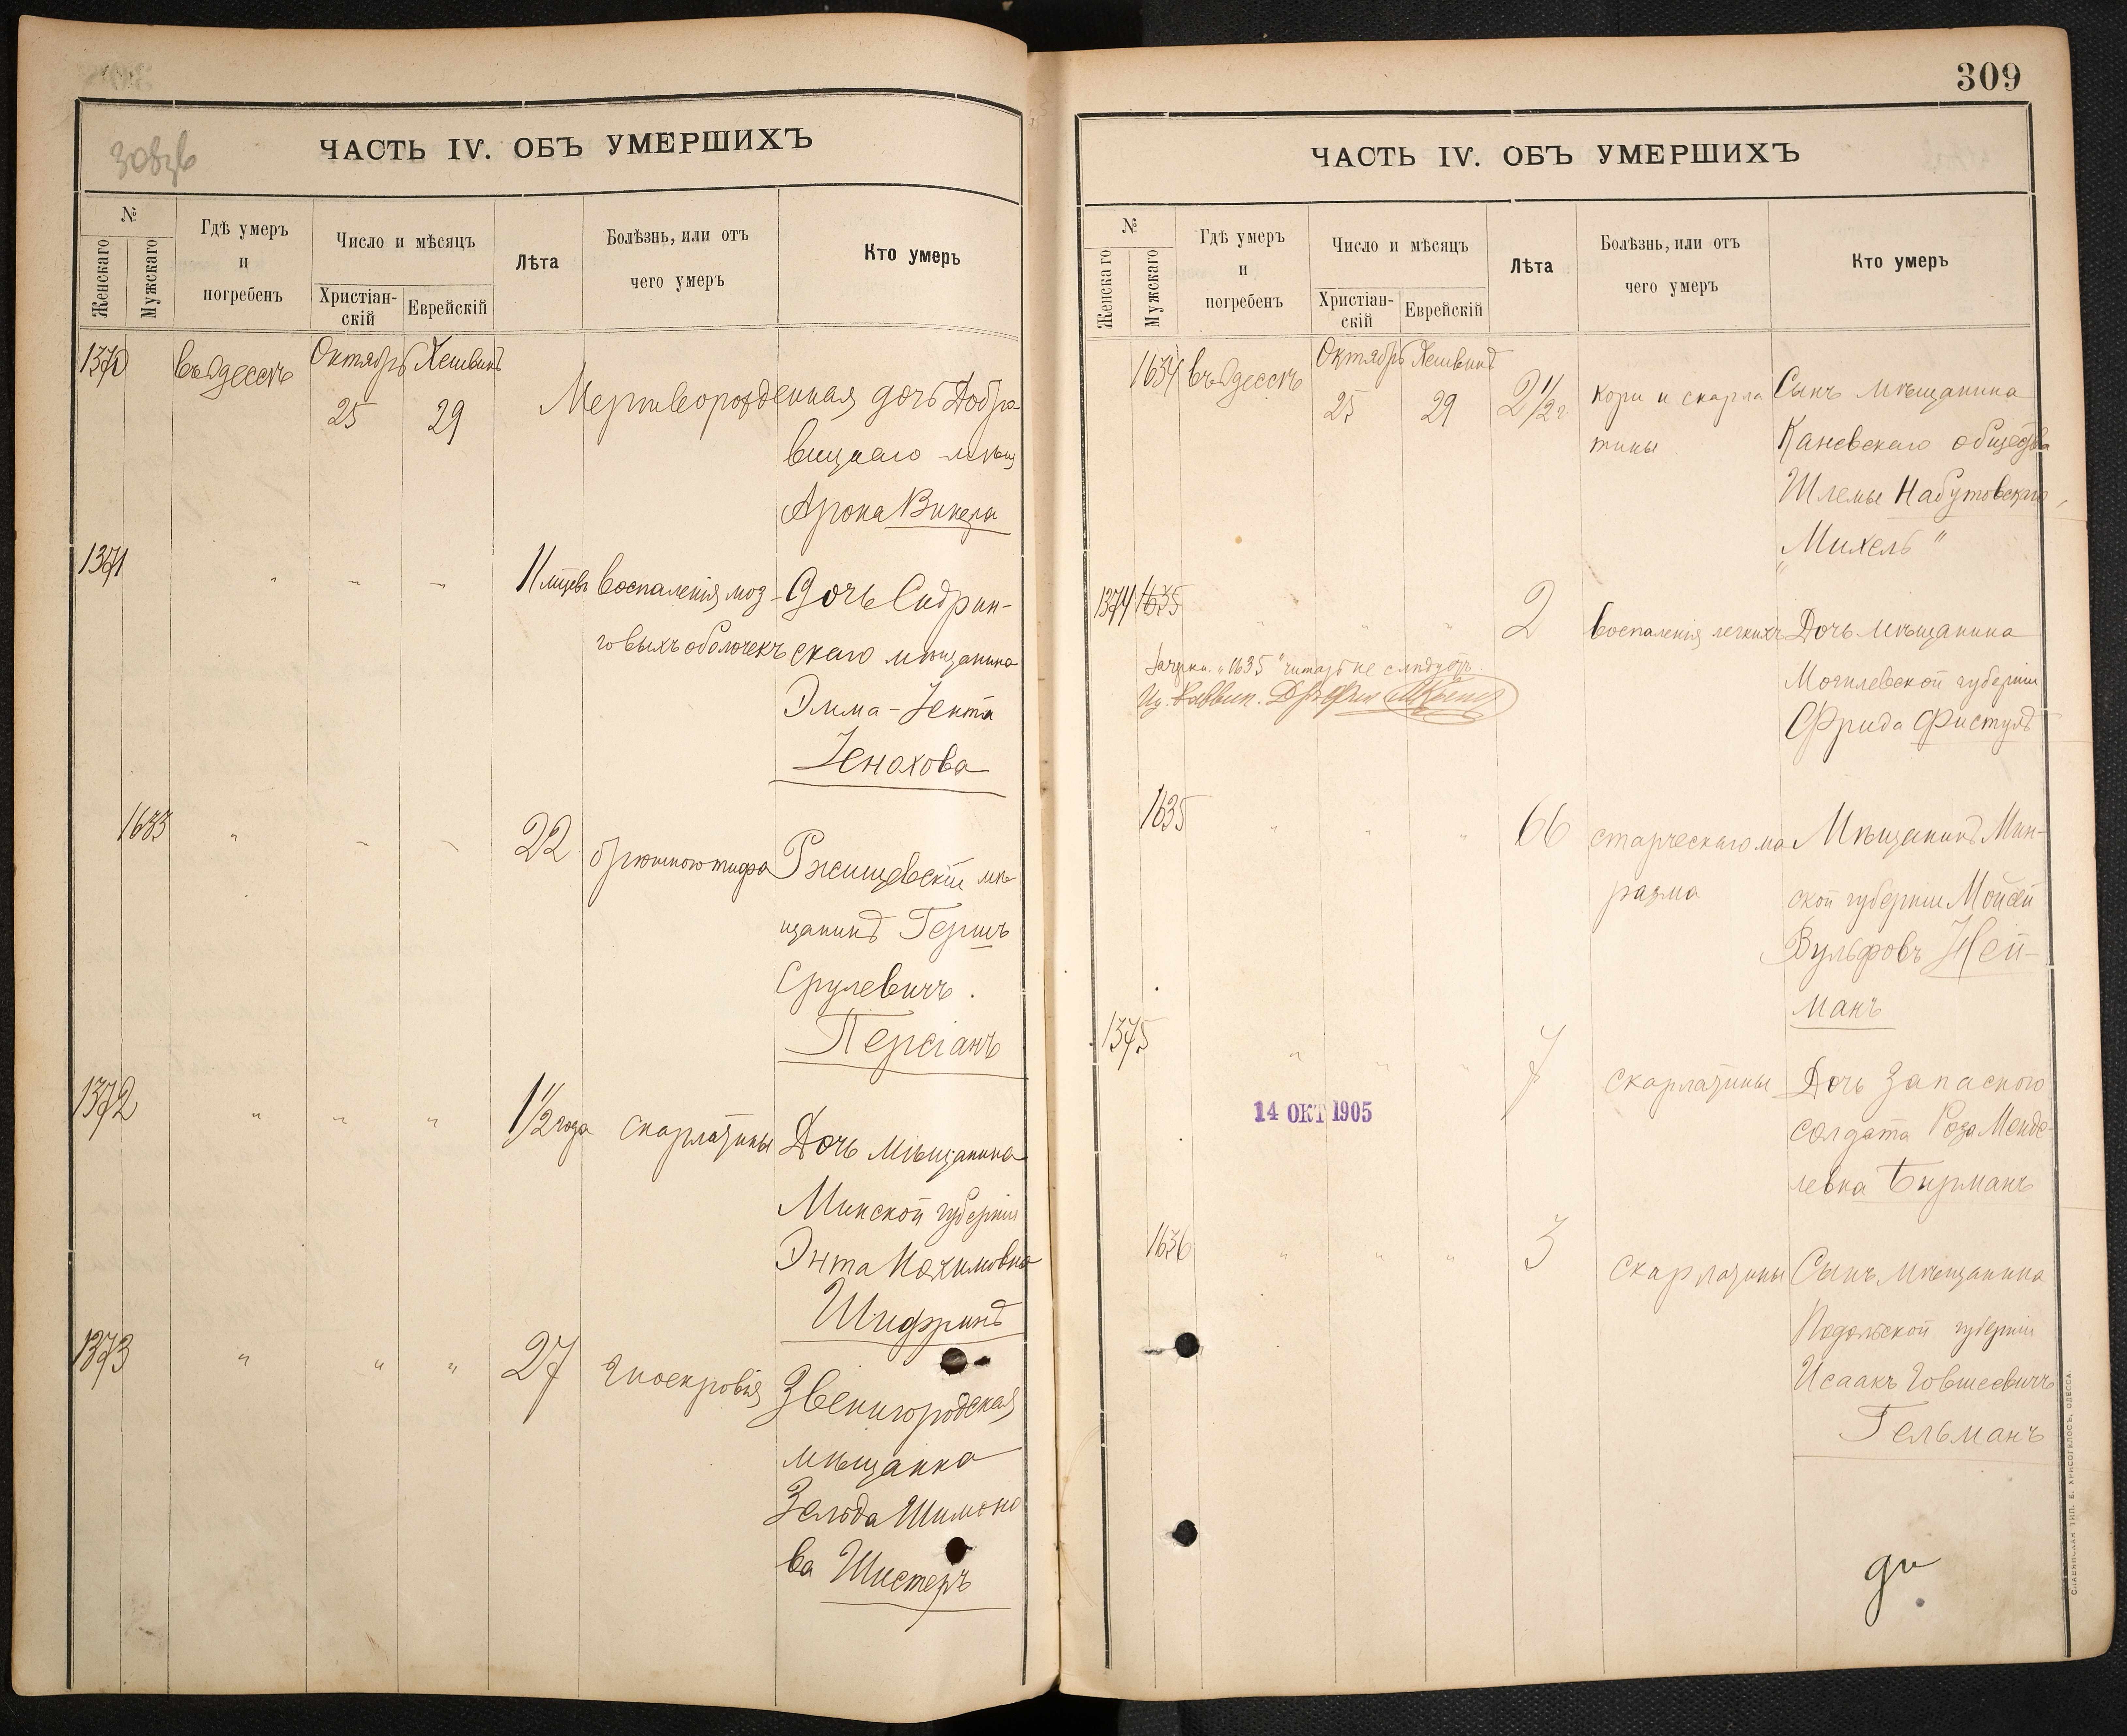 ЧАСТЬ IV. ОБЪ УМЕРШИХЪ
№
Женскаго
Мужскаго
Гдѣ умеръ
и
погребенъ
Число и мѣсяцъ
Христіан-
скій
Еврейскій
Лѣта
Болѣзнь, или отъ
чего умеръ
Кто умеръ
1370 въ Одессѣ Октябрь Хешвинъ
25 29 Мертворожденная дочь Добра-
вицкаго мѣщ
Арона Винера
1371 " " " 11 мцевъ воспаленія моз- Дочь Сидрин-
говыхъ оболочекъ скаго мѣщанина
Эмма-Гента
Генохова
1633 " " " 22 брюшного тифа Ржищевскій мѣ
щанинъ Гершъ
Срулевичъ.
Персіанъ
1372 " " " 1 1/2 года скарлатины Дочь мѣщанина
Минской губерніи
Энта Нохимовна
Шифринъ
1373 " " " 27 гноекровія Звенигородская
мѣщанка
Зельда Шимоно
ва Шистеръ
309
ЧАСТЬ IV. ОБЪ УМЕРШИХЪ
№
Женскаго
Мужскаго
Гдѣ умеръ
и
погребенъ
Число и мѣсяцъ
Христіан-
скій
Еврейскій
Лѣта
Болѣзнь, или отъ
чего умеръ
Кто умеръ
1634 въ Одессѣ Октябрь Хешвинъ
25 29 2 1/2 г кори и скарла Сынъ мѣщанина
тины Каневскаго общества
Шлемы Набутовскаго,
"Михель"
1374 1635 " " " 2 воспаленія легкихъ Дочь мѣщанина
Зачерки. "1635" читать не слѣдуетъ.
Могилевской губерніи
Фрида Фистулъ
1635 " " " 66 старческаго ма Мѣщанинъ Мин-
разма ской губерніи Мойсей
Вульфовъ Ней-
манъ
1375 " " " 7 скарлатины Дочь запасного
14 ОКТ 1905
солдата Роза Менде-
левна Бирманъ
1636 " " " 3 скарлатины Сынъ мѣщанина
Подольской губерніи
Исаакъ Говшеевичъ
Гельманъ
СЛАВЯНСКАЯ ТИП. Е. ХРИСОГЕЛОСЪ, ОДЕССА.